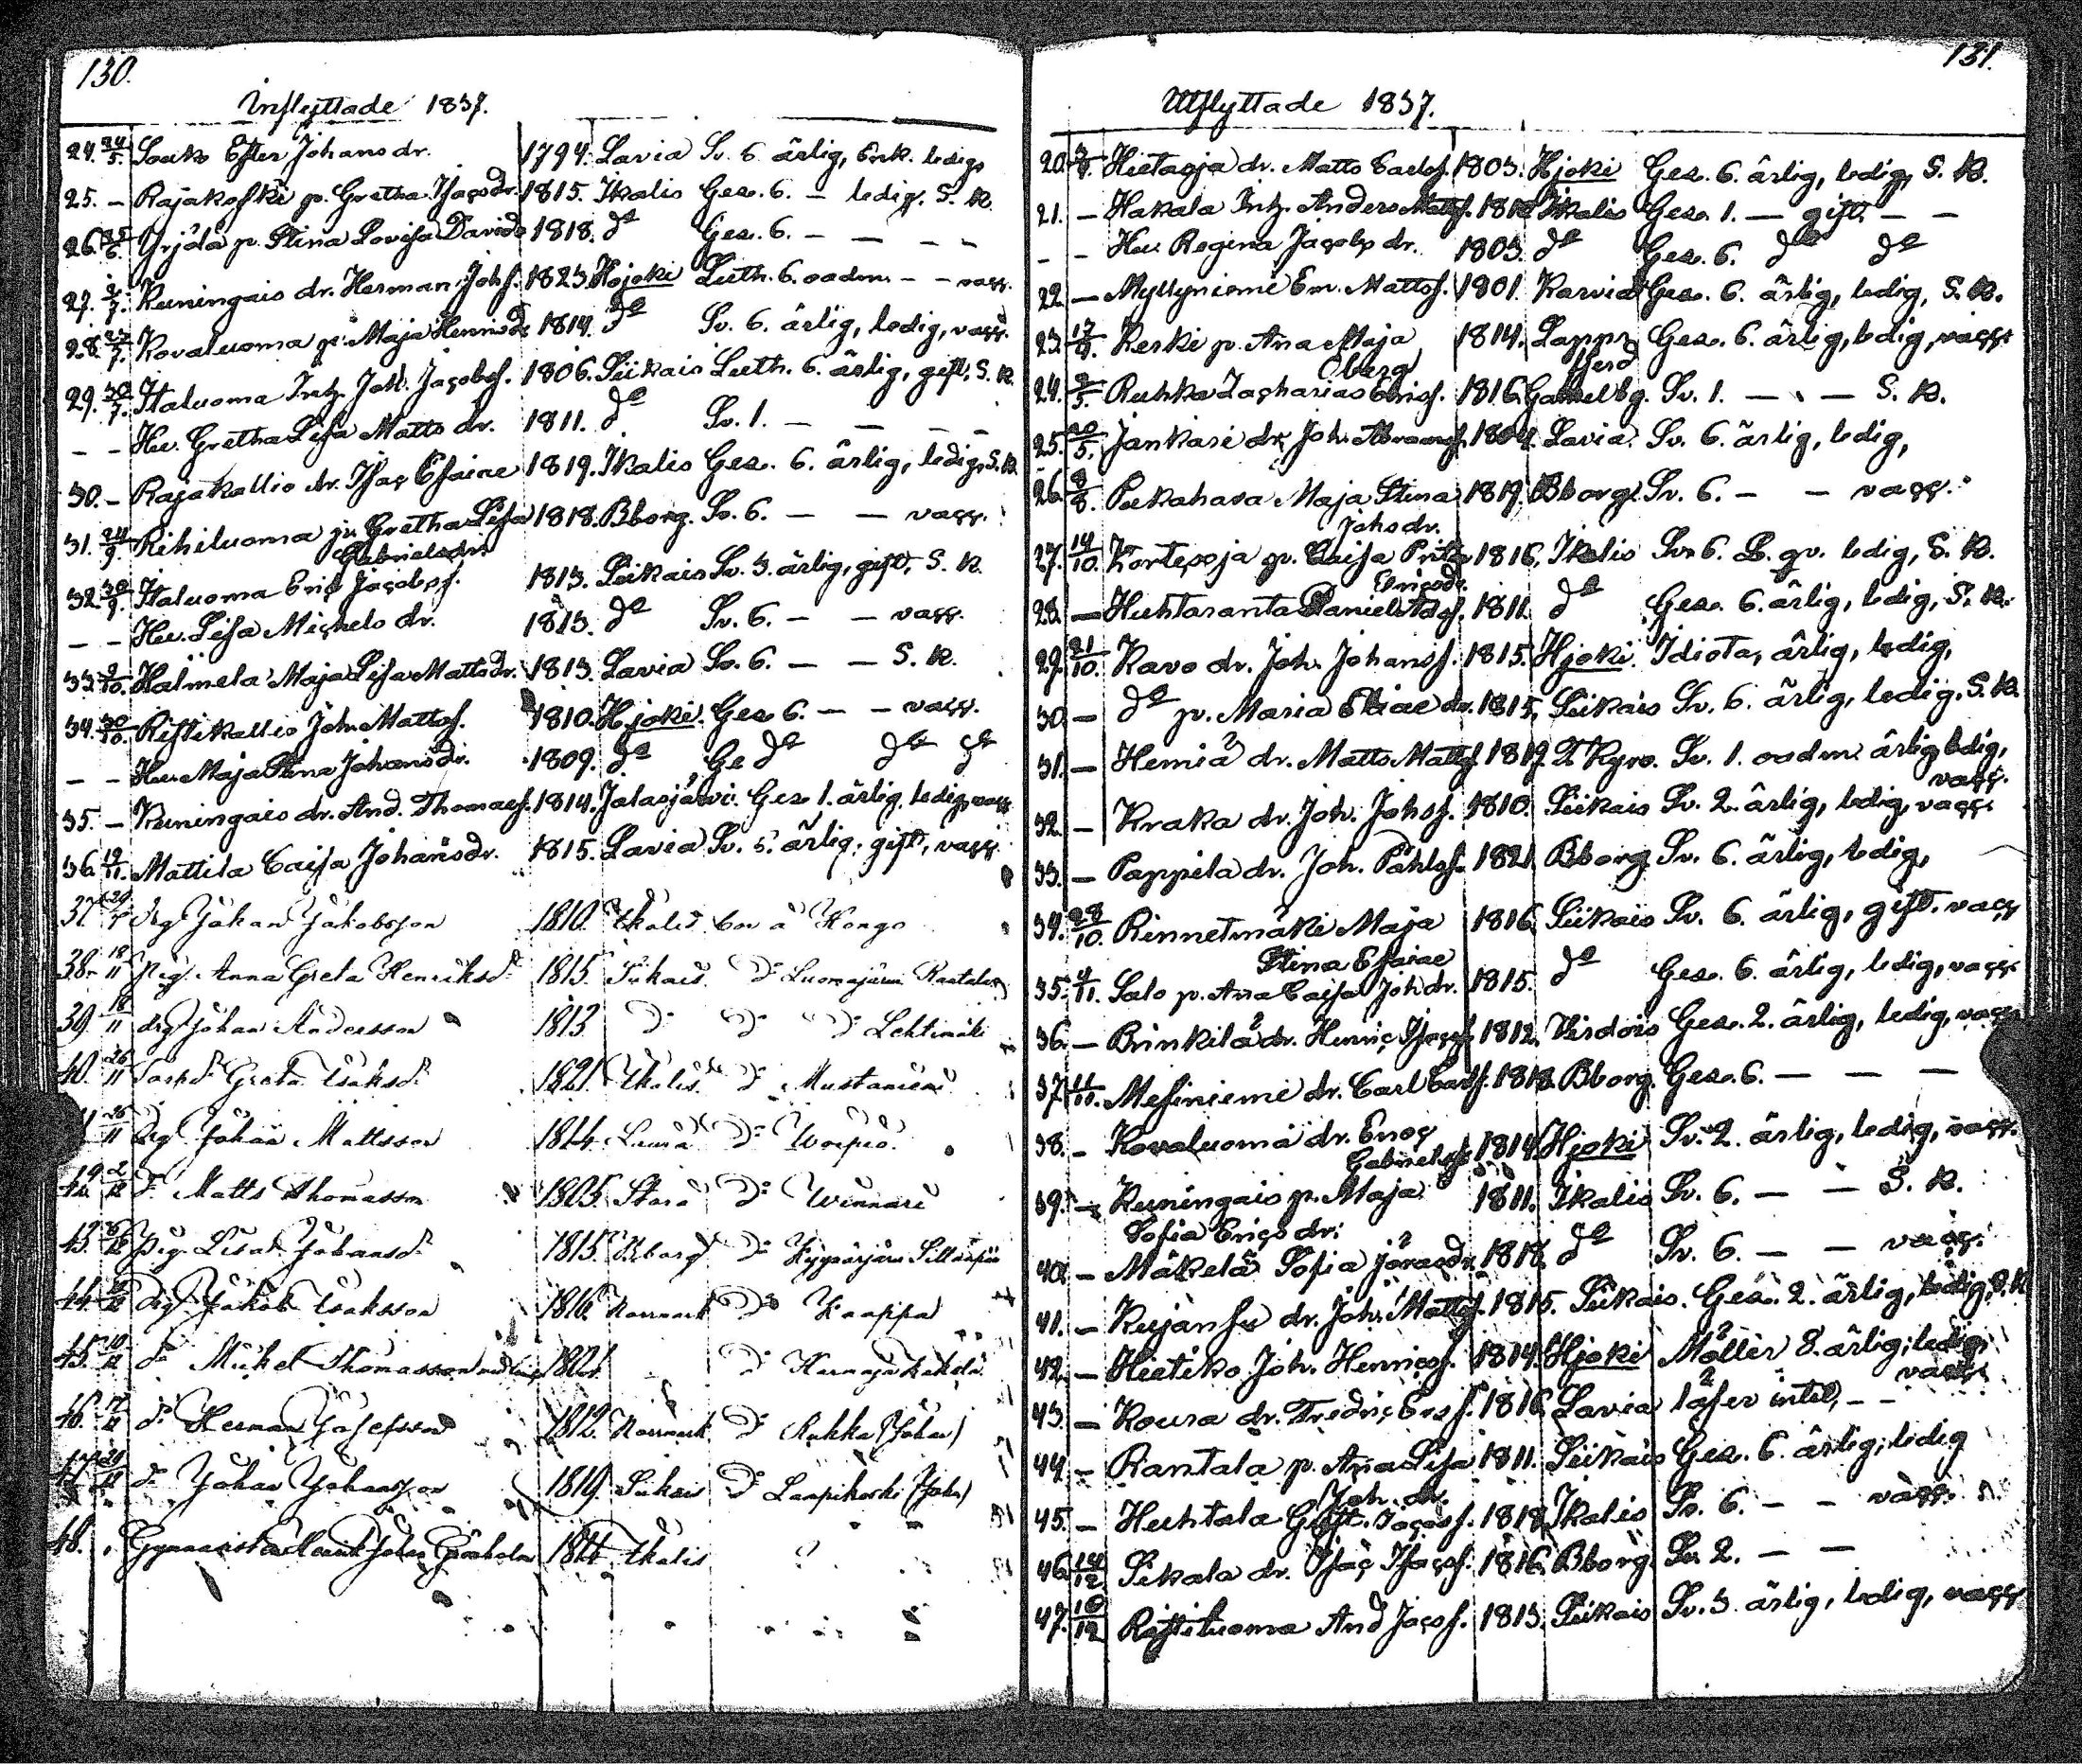 130.
Inflyttade 1837.
24. 24/5. Souko Ester Johans dr. 1794. Lavia Sv. 6 ärlig, Enk. ledig
25. – Rajakoski p. Gretha Isaçsdr. 1815. Ikalis Ges. 6. – ledig. S. k.
26. Yrjälä p. Stina Lovisa Davids 1818. do Ges. 6. – – – –
27. 2/7. Kuningais dr. Herman Johs. 1823. Hjoki Luth. 6. oadm. – – vacc.
28. 23/7. Kovaluoma p. Maja Henricsdr 1814. do Sv. 6. ärlig, ledig, vacc.
29. 30/7. Italuoma Inh. Joh. Jaçobss. 1806. Siikais Luth. 6. ärlig, gift, S. k.
– – Hu. Gretha Lisa Matts dr. 1811. do Sv. 1. – – – –
30. – Rajakallio dr. Isaç Esaiae 1819. Ikalis Ges. 6. ärlig, ledig, S. k.
31. 24/9. Riihiluoma p. Gretha Lisa 1818. Bborg. Sv. 6. – – vacc.
Gabrielsdr.
32. 30/9. Italuoma Eriç Jaçobss. 1813. Siikais Sv. 3. ärlig, gift, S. k.
– – Hu. Lisa Miçhels dr. 1813. do Sv. 6. – – vacc.
33. 9/10. Halmela Maja Lisa Mattsdr. 1813. Lavia Sv. 6. – – S. k.
34. 30/10. Ristikallio Joh. Mattss. 1810. Hjoki. Ges 6. – – vacc.
– – Hu. Maja Stina Johansdr. 1809. do Ge do do do
35. – Kuningais dr. And. Thomaes. 1814. Jalasjärvi. Ges 1. ärlig, ledig, vacc
36. 19/11. Mattila Caisa Johansdr. 1815. Lavia Sv. 5. ärlig, gift, vacc.
37. Drg Johan Jakobsson 1810. Ikalis bor å Kongo
38. 18/11 Pig. Anna Greta Henriksd. 1815. Siikais Do Luomajärvi Rantala
39. 18/11 drg Johan Andersson 1813 Do Do Do Lehtimäki
40. 26/11 Greta Isaksd. 1821. Ikalis Do Mustaniemi
26/11 Drg Johan Mattsson 1814 Lavia Do
2/12 Do Matts Thomasson 1805. Do
43. Pig. Lisa Johansd. 1815. Bborg Do Sillanpää
44. Drg. Jakob Isaksson 1816. Norrmark Do Kaappa
45. 10/12 Do Mickel Thomasson 1801. Do
46. Do Herman Josefsson 1812. Norrmark Do Ruhka (Johan)
Do Johan Johansson 1819. Siikais Do Lampikoski (Joh.)
48. Gymnasisten Henrik Johan 18 Ikalis ?
131.
Utflyttade 1837.
20. Hietaoja dr. Matts Carlss. 1803. Hjoki Ges. 6. ärlig, ledig, S. k.
21. – Hakala Inh. Anders Mattss. 1810 Ikalis Ges. 1. – gift – –
– – Hu. Regina Jaçobs dr. 1803. do Ges. 6. do do
22. – Myllyniemi Em. Mattss. 1801. Karvia Ges. 6. ärlig, ledig, S. k.
23. Keski p. Ana Maja 1814. Lappr Ges. 6. ärlig, ledig, vacc.
Öberg
24. 2/5. Ruhka Zaçharias Ericss. 1816. Gamelbg. Sv. 1. – – S. k.
25. 20/5. Jankari dr. Joh. Abramss. 1804. Lavia. Sv. 6. ärlig, ledig,
26. 8/8. Pukahara Maja Stina 1819. Bborg. Sv. 6. – – vacc.
Johsdr.
27. 14/10. Kortesoja p. Caisa Prita 1816. Ikalis Sv. 6. B. qv. ledig, S. k.
Eriçsdr.
28. – Huhtaranta Daniel Adss. 1811. do Ges. 6. ärlig, ledig, S. k.
29. 21/10. Kavo dr. Joh. Johanss. 1815. Hjoki. Idiota, ärlig, ledig,
30. – do p. Maria Eliae dr. 1815. Siikais Sv. 6. ärlig, ledig. S. k.
31. – Hemiä dr. Matts Mattss. 1819. T Kyro. Sv. 1. oadm. ärlig, ledig,
vacc.
32. – Kraka dr. Joh. Johss. 1810. Siikais Sv. 2. ärlig, ledig, vacc.
33. – Pappila dr. Joh. Påhlss. 1821. Bborg Sv. 6. ärlig, ledig,
34. 28/10. Rinnetmäki Maja 1816. Siikais Sv. 6. ärlig, gift. vacc
Stina Esaiae
35. 4/11. Salo p. Ana Caisa Joh dr. 1815. do Ges. 6. ärlig, ledig, vacc.
36. – Brinkilä dr. Henriç Isaçss. 1812. Virdois Ges. 2. ärlig, ledig, vacc.
37. Mesiniemi dr. Carl Carlss. 1818. Bborg. Ges. 6. – – –
38. – Kovaluoma dr. Enoç 1814. Hjoki Sv. 2. ärlig, ledig, vacc.
Gabrielss.
39. – Kuningais p. Maja 1811. Ikalis Sv. 6. – – S. k.
Sofia Eriçs dr.
40. – Mäkelä Sofia Jöransdr. 1818. do Sv. 6. – – vacc.
41. – Kujansu dr. Joh. Mattss. 1815. Siikais. Ges. 2. ärlig, ledig, S. k
42. – Hietiko Joh. Henricss. 1814. Hjoki Möller 8. ärlig, ledig,
vacc.
43. – Koura dr. Fredriç Ericss. 1816. Lavia läser intet, – –
44. – Rantala p. Ana Lisa 1811. Siikais Ges. 6. ärlig, ledig
Joh. dr.
45. – Huhtala Gust. Jaçobss. 1818. Ikalis Sv. 6. – – vacc.
46. 14/12 Sikala dr. Isaç Isaçss. 1816. Bborg. Sv. 2. – –
47. 16/12 Ristiluoma And Jaçss. 1813. Siikais Sv. 3. ärlig, ledig, vacc